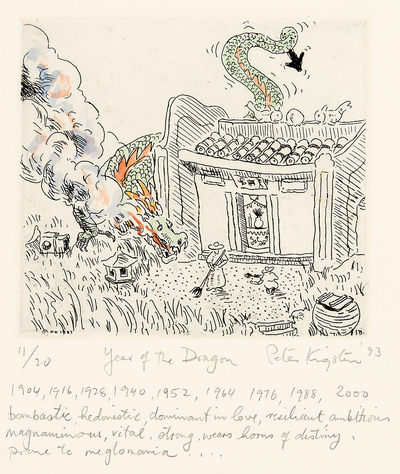 11/20 Year of the Dragon Peter Kingston '93
1904, 1916, 1928, 1940, 1952, 1964 1976, 1988, 2000
bombastic, hedonistic dominant in love, resiliant ambitious
magnaminous, vital, strong, wears horns of destiny,
prone to meglomania .....